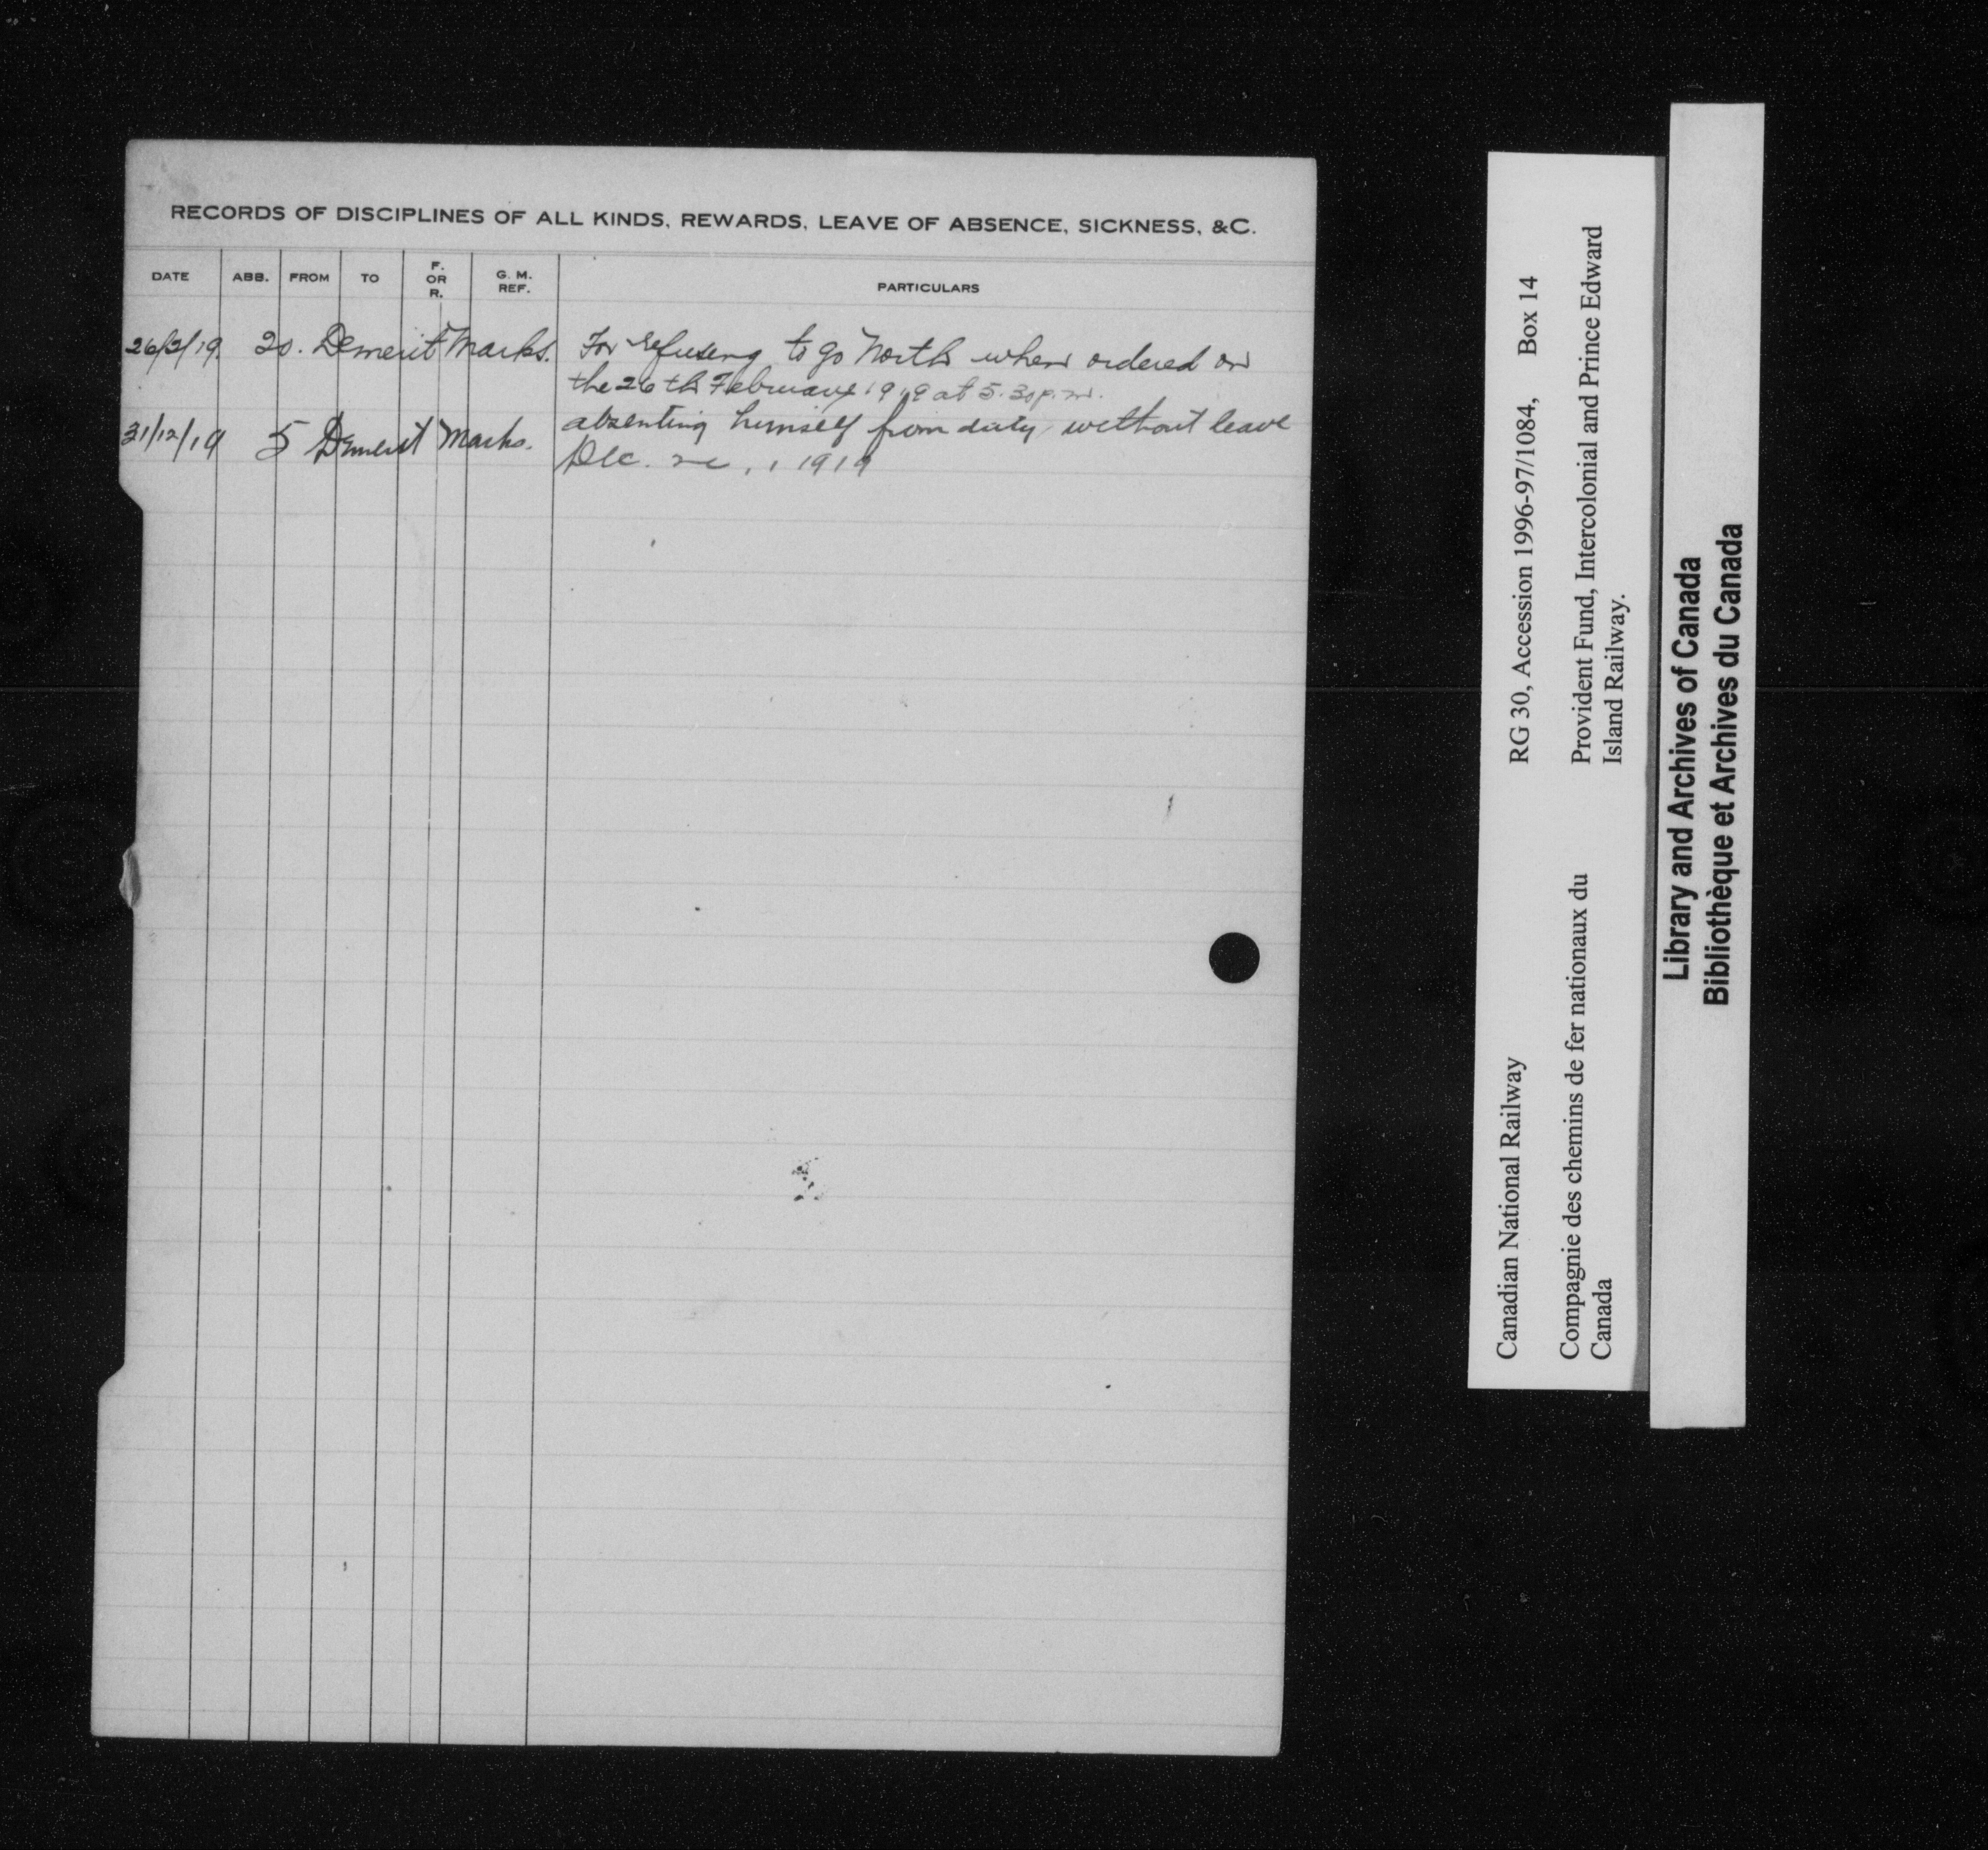 RECORDS OF DISCIPLINES OF ALL KINDS, REWARDS, LEAVE OF ABSENCE, SICKNESS, &C.
DATE ABB. FROM TO F. OR R. G. M. REF. PARTICULARS
26/2/19 20. Demerit Marks. For refusing to go North when ordered on
the 26th February 1919 at 5.30 p.m.
31/12/19 5 Demerit Marks. absenting himself from duty without leave
Dec. 1919
Canadian National Railway
RG 30, Accession 1996-97/1084, Box 14
Compagnie des chemins de fer nationaux du
Canada
Provident Fund, Intercolonial and Prince Edward
Island Railway.
Library and Archives of Canada
Bibliothèque et Archives du Canada